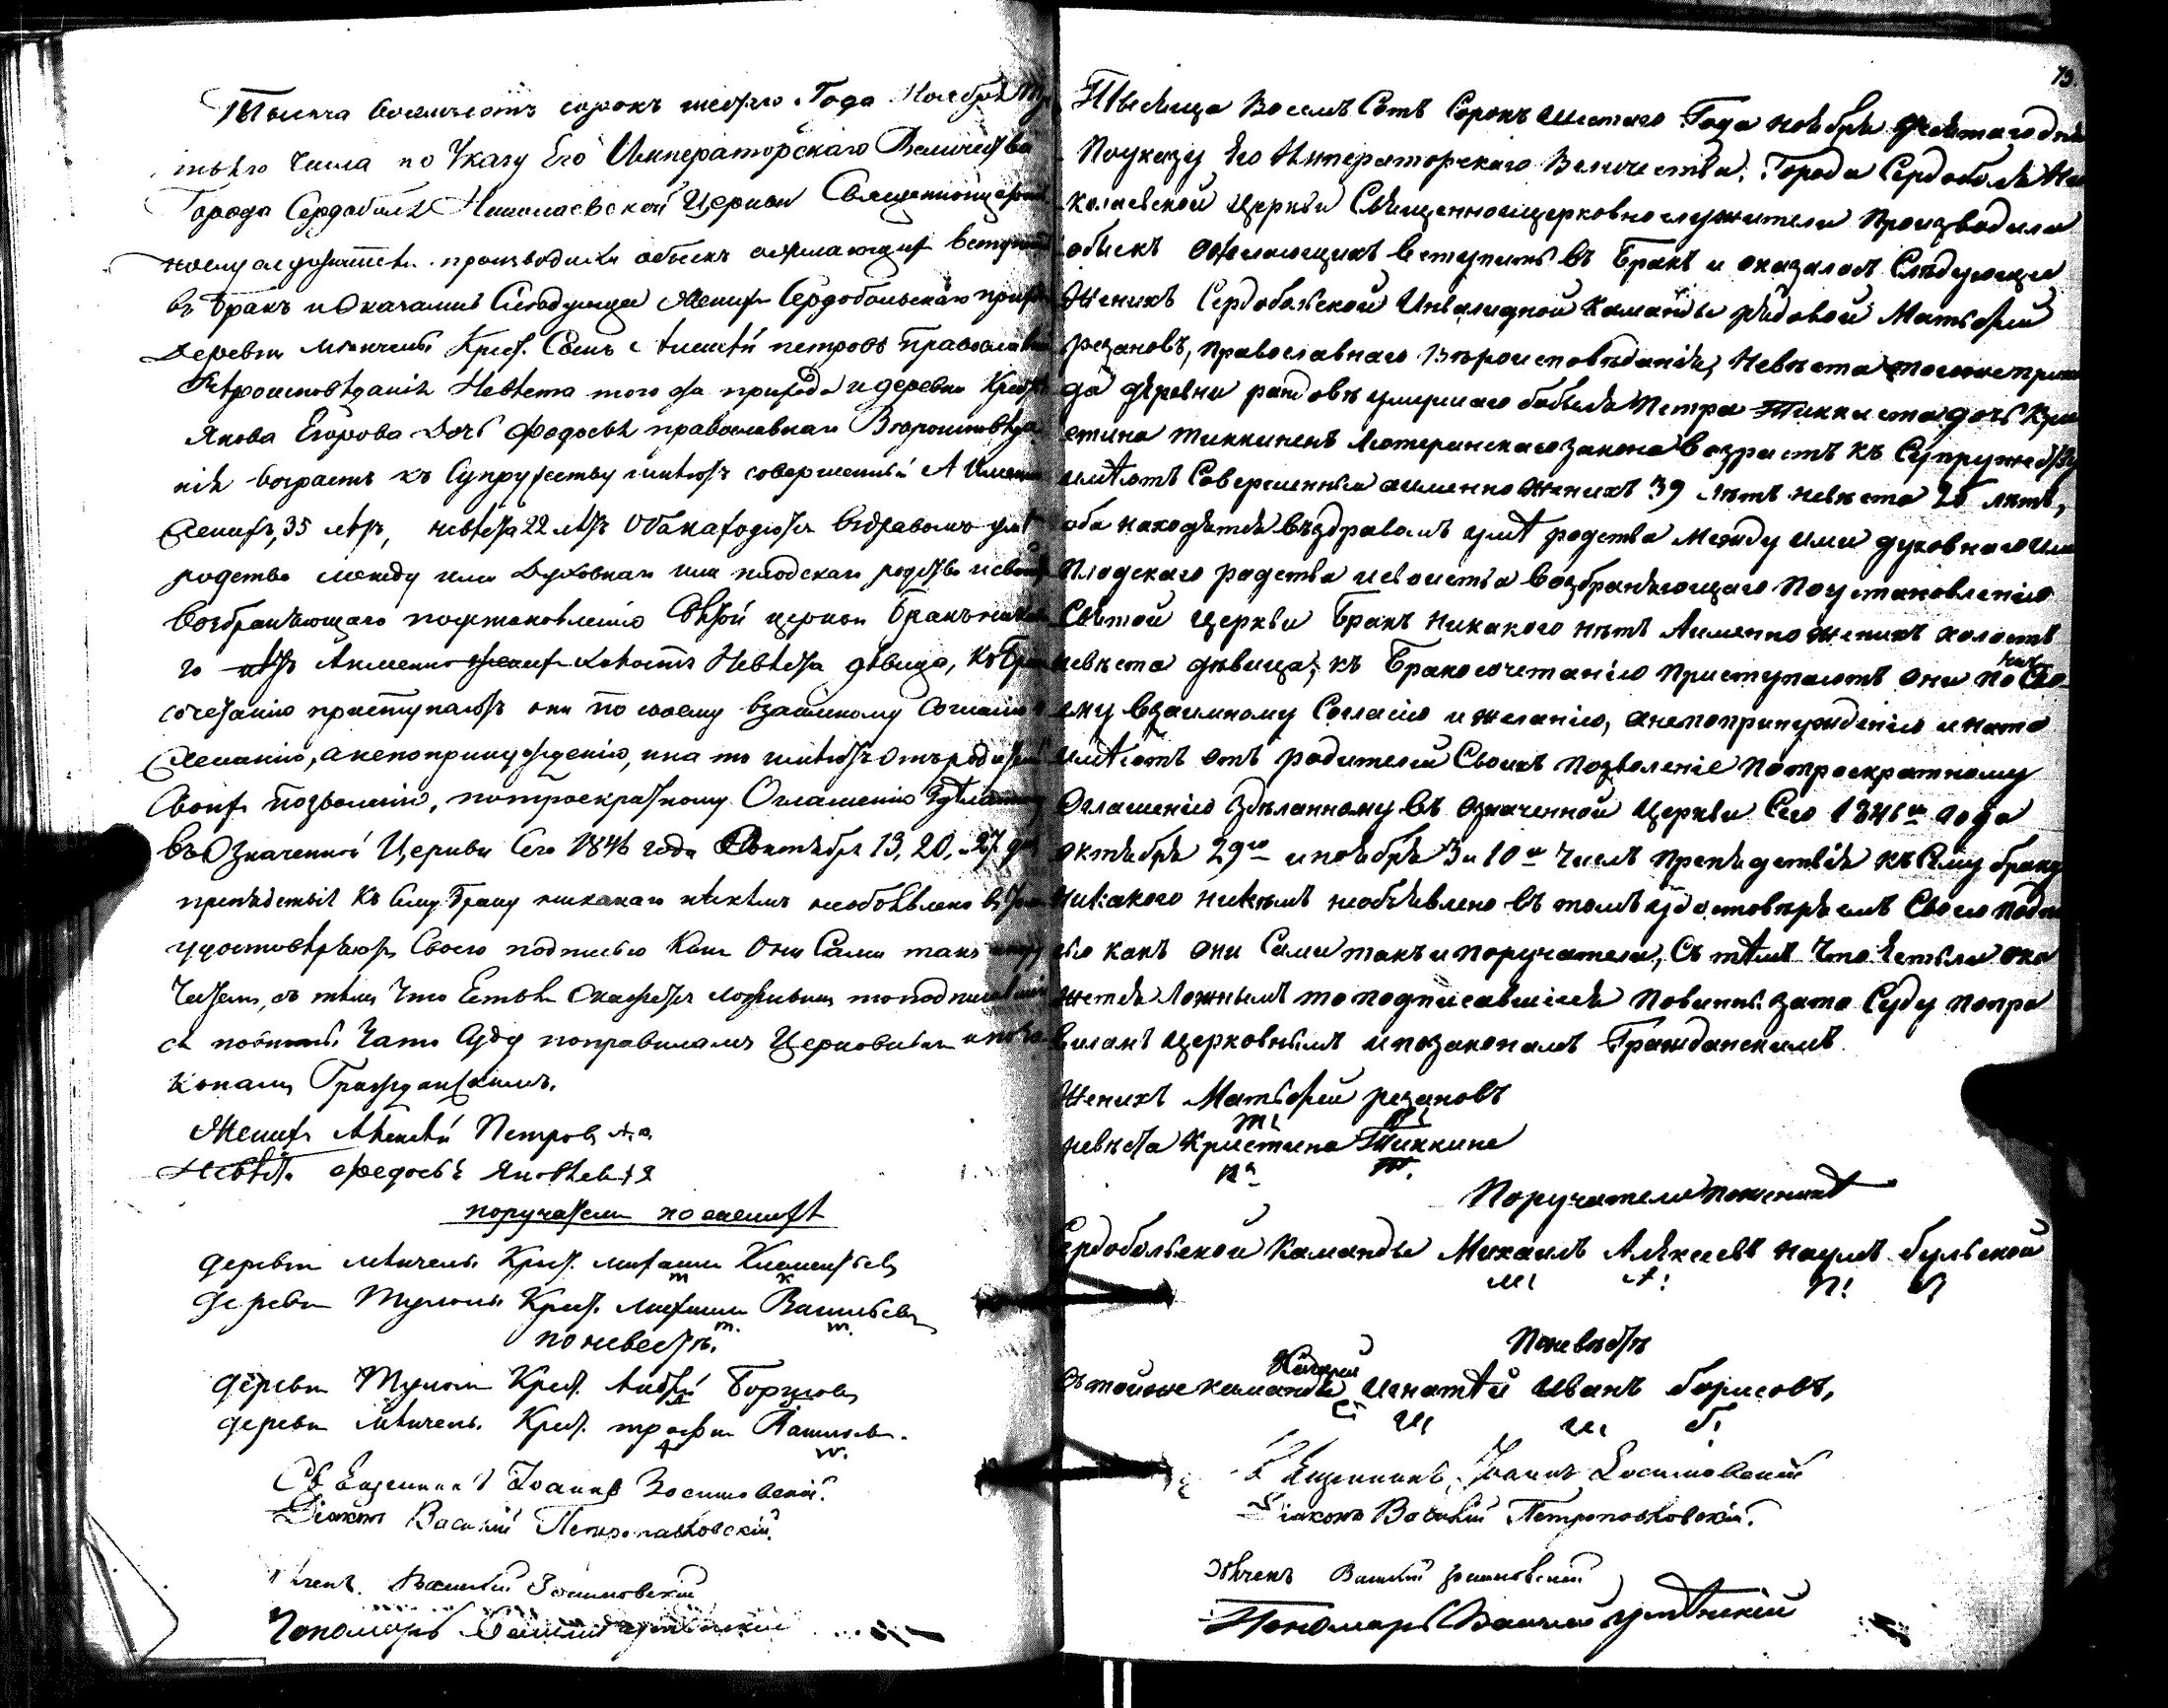 Тысяча восемьсотъ сорокъ шестаго Года Ноября
тьяго Числа по Указу Его Императорскаго Величества
Города Сердоболя Николаевской Церкви Священноцерков
нослужители производили обыскъ о желающихъ вступить
въ бракъ и Оказалось Слѣдующее Женихъ Сердобольскаго прихода
Деревни Крест. Сынъ Алексѣй петровъ Православнаго
Вѣроисповѣданія Невѣста того же прихода и деревни Крест
Якова Егорова Дочь Федосья православнаго Вѣроисповѣда
нія возрастъ къ Супружеству имѣютъ совершенный А Именно
Женихъ, 35 лѣтъ, невѣста 22 лѣтъ Оба находятся въ здравомъ умѣ
родства между ими Духовнаго или плодскаго родства и свойства
возбраняющаго по установленію Святой церкви бракъ никако
го нѣтъ А именно женихъ холостъ Невѣста дѣвица, къ Брако
сочетанію приступаютъ они по своему взаимному Согласію и
желанію, а не по принужденію, и на то имѣютъ отъ родителей
Своихъ позволеніе, по троекратному Оглашенію Здѣланному
въ Означенной Церкви Сего 1846 года Октября 13, 20, и 27 дня
препядствія къ сему браку никакаго никѣмъ не объявлено въ томъ
удостовѣряютъ Своею подписью Какъ Они Сами такъ и пору
чатели, съ тѣмъ Что Естьли Окажется ложнымъ то подписавшіе
ся повинны. За то Суду по правиламъ Церковнымъ и по за
конамъ Гражданскимъ.
Женихъ Алексѣй Петровъ А. П.
Невѣста Федосья Яковлева
поручатели по женихѣ
деревни Крест. Клементьевъ
деревни Тулолы Крест. Васильевъ
по невестѣ.
деревни Тулолы Крест. Андрей Борисовъ
деревни Крест. трофимъ Васильевъ.
Священникъ Іоаннъ Зосимовскій.
Діаконъ Василій Петропавловскій
Василій Зосимовскій
Пономарь Василій
73.
Тысяща Восемъ Сотъ Сорокъ шестаго Года ноября девятаго дня
По указу Его Императорскаго Величества. Города Сердоболя Ни
колаевской Церкви Священноицерковнослужители Производили
обыскъ Ожелающихъ вступить въ Бракъ и оказалось Слѣдующее
Женихъ Сердобольской Инвалидной Команды рядовой Матвѣй
резановъ, Православнаго Вѣроисповѣданія, Невѣста тогоже прихо
да деревни умершаго бобыля Петра Тиккиста дочь Кри
стина тиккиненъ Лютеранскаго закона возрастъ къ Супружеству
имѣютъ Совершенный аименно женихъ 39 лѣтъ невѣста лѣтъ,
оба находятся въ здравомъ умѣ родства Между ими духовнаго или
Плодскаго родства и своиства возбраняющаго По установленію
Святой Церкви Бракъ Никакого нѣтъ Аименно женихъ холостъ
невѣста дѣвица, къ Бракосочетанію Приступаютъ они по Сво
ему взаимному Согласію и желанію, анепопринужденію и нато
имѣютъ отъ родителей Своихъ позволеніе Потроекратному
Оглашенію Здѣланному въ означенной Церкви Сего 1846го года
октября 29го и ноября 3 и 10го Числъ Препядствія къ Сему браку
никакого никѣмъ необъявлено въ томъ удостовѣряемъ Своею Подпи
сью какъ они Сами такъ и поручатели, Съ тѣмъ Что Естьли ока
жется Ложнымъ то подписавшіися Повинны. зато Суду попра
виламъ Церковнымъ и позаконамъ Гражданскимъ.
Женихъ Матвѣй резановъ
невѣста Кристина Тиккине
Поручатели поженихѣ
Сердобольской Команды Михаилъ Алексеевъ наумъ бульской
По невѣстѣ
Стойже команды Игнатѣй Иванъ борисовъ,
Священникъ Іоаннъ Зосимовскій
Діаконъ Василій Петропавловскій.
Василій Зосимовскій
Пономарь Василій